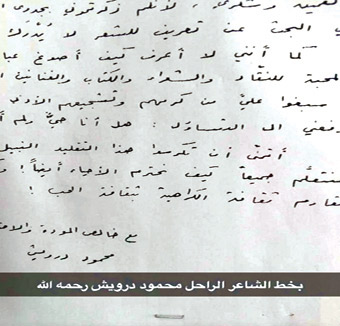 وشعري، لأنكم ذكرتموني بجدوى
في البحث عن تعريف للشعر لا يُدْرَك
كما أنني لا أعرف كيف أصوغ
المحبة للنقّاد والشعراء والكتّاب والفنانين
سبغوا عليّ من كرمهم وتشجيعهم
إلى التساؤل: هل أنا حيٌّ
أتمنى أن تكرسوا هذا التقليد النبيل
جميعاً كيف نحترم الأحياء أيضاً!
ثقافة الكراهية بثقافة الحب!
مع خالص المودة
محمود درويش
بخط الشاعر الراحل محمود درويش رحمه الله